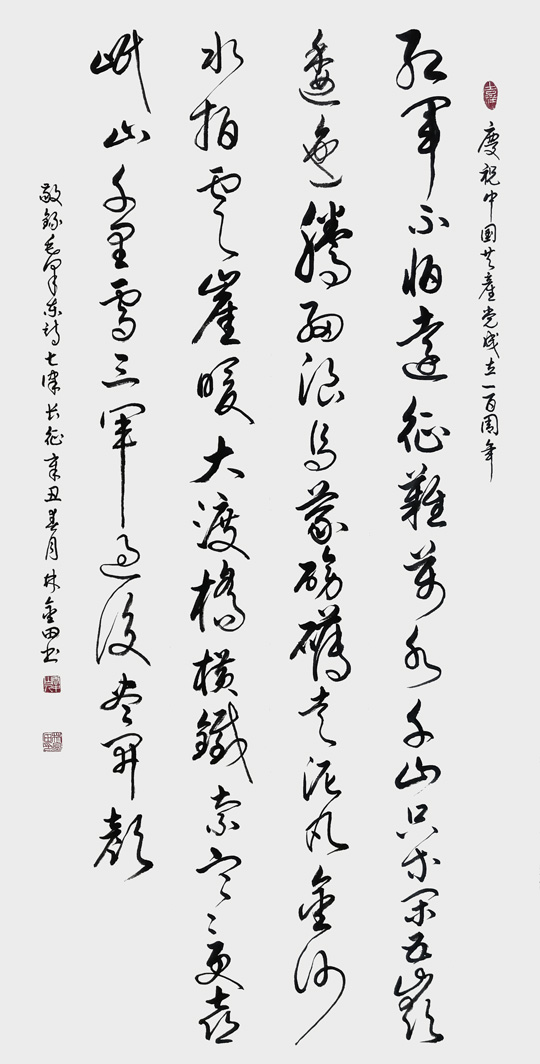 慶祝中國共產党成立一百周年
紅軍不怕遠征難萬水千山只等閑五嶺
逶迤騰細浪烏蒙磅礴走泥丸金沙
水拍雲崖暖大渡橋橫鐵索寒更喜
岷山千里雪三軍過後盡開顏
敬錄毛澤東詩七律長征辛丑春月林金田书